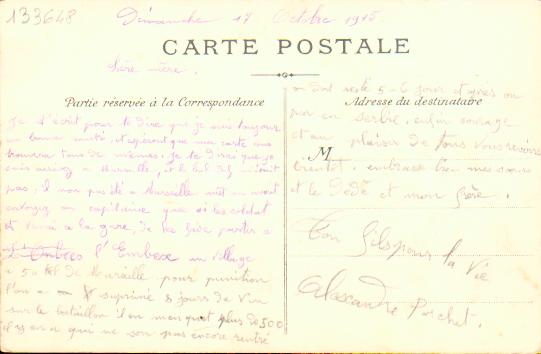 133648
Dimanche 17 Octobre 1915
CARTE POSTALE
Chère mère.
Partie réservée à la Correspondance
Je t'écrit pour te dire que je suis toujours
en bonne santé, et espérant que ma carte vous
trouvera tous de mêmes. Je te dirai que je
suis à Marseille, et le
pas, il non pas été a Marseille
un capitaine que si les soldat
a la gare, de partir a
l'Embex un village
a 50 kil de Marseille pour punition
l'on a suprimé 8 jours de Vin
sur le bataillon il en manquait plus de 500
il y en a qui ne son pas encore rentré
on doit resté 5-6 jour et après on
par en serbie, enfin courage
Adresse du destinataire
et au plaisir de tous vous revoir
M
bientot. embrasse bien mes
et le Dédé et mon frère.
Ton fils pour la vie
Alexandre Porchet.